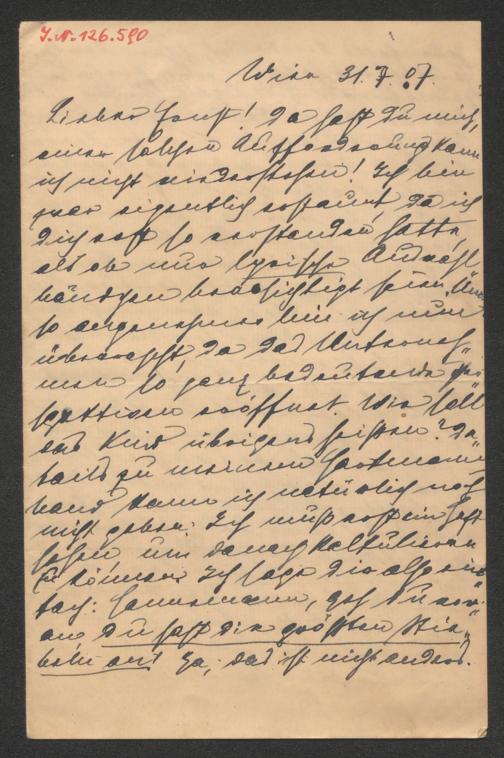 J.N. 126.590
Wien 31.7.07.
Lieber Horst! Da hast du mich,
einer solchen Aufforderung kann
ich nicht widerstehen! Ich bin
zwar eigentlich erstaunt, da ich
dich erst so verstanden hatte,
als ob nur lyrische Auswahl
bändchen beabsichtigt seien.
so angenehmer bin ich nun
überrascht, da das Unterneh-
men so ganz bedeutende Per-
spektiven eröffnet. Wie soll
das Kind übrigens heißen? De-
tails zu meinem Hartmann
band kann ich natürlich noch
nicht geben. Ich muß erst ein Heft
sehen um danach kalkulieren
zu können. Ich sage dir also ein-
fach: Hannemann, geh du vor-
an du hast die größten Stie-
beln an! Ja, das ist nicht anders.